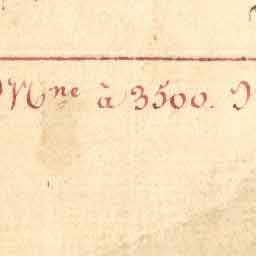 Mne à 3500.